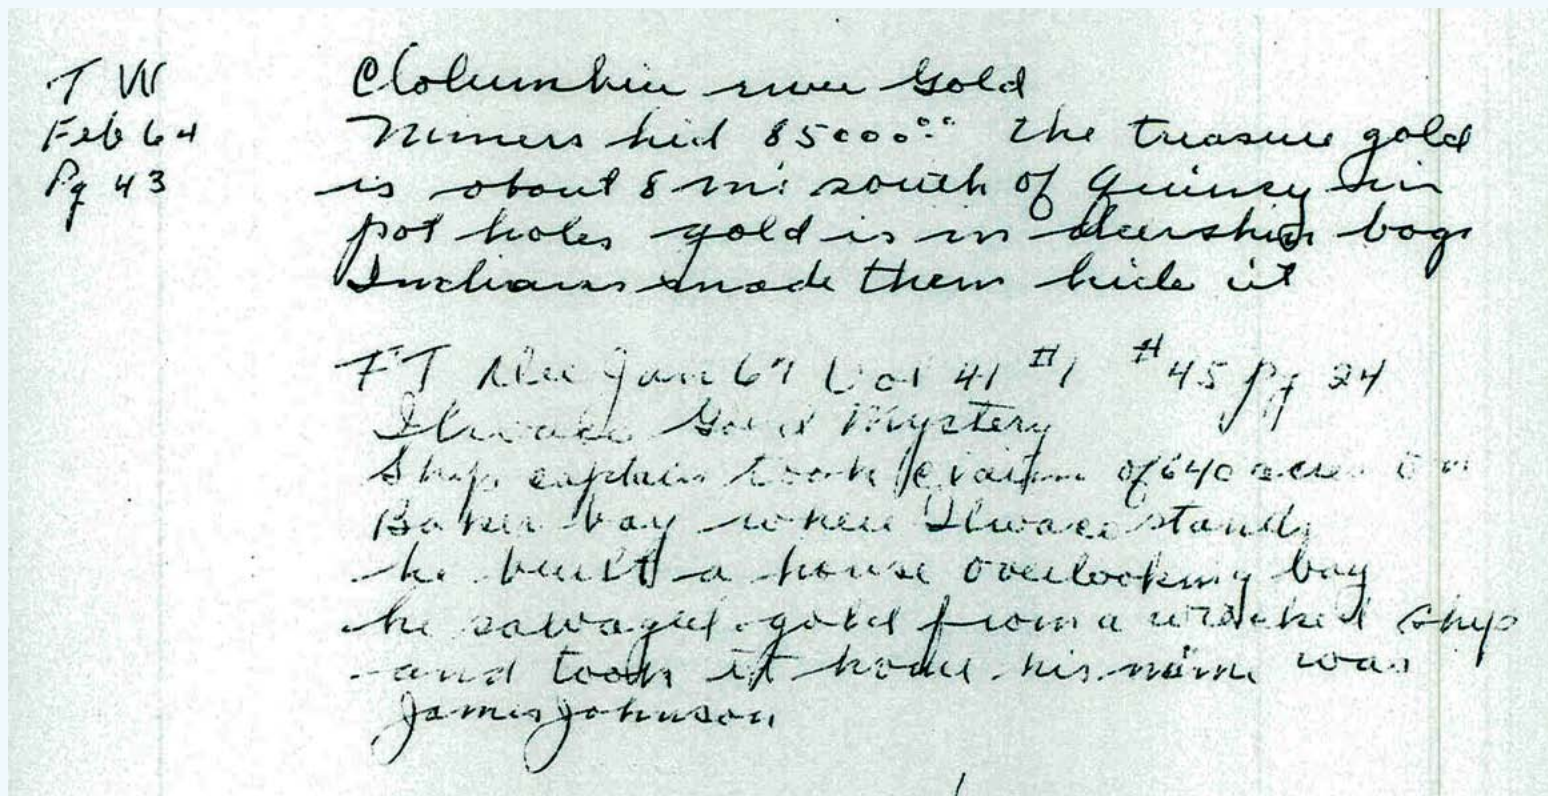 T W
Feb 64
Pg 43
Columbia river Gold
Miners hid 85000.00 The treasure gold
is about 8 mi south of Quincy in
pot holes gold is in deerskin bags
Indians made them hide it
FT Dec Jan 67 Vol 41 #1 #45 pg 24
Ilwaco Gold Mystery
Ship captain took claim of 640 acres on
Baker bay where Ilwaco stands
he built a house overlooking bay
he savaged gold from a wrecked ship
and took it home his name was
James Johnson